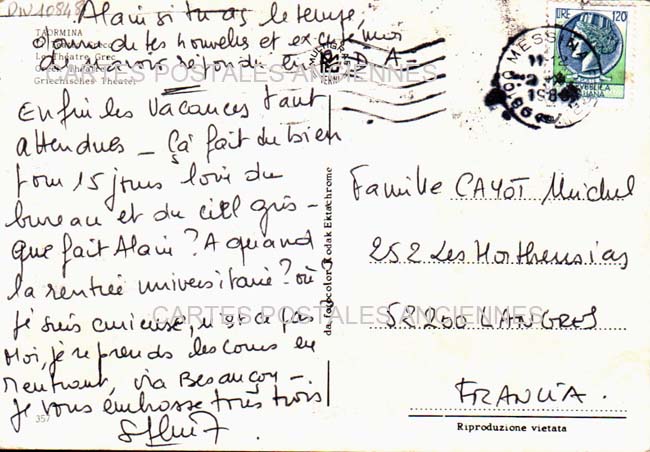 DIV 10848
Alain si tu as le temps,
donne de tes nouvelles et excuse moi
de
TAORMINA
Il Teatro Greco
Le Théâtre Grec
Griechisches Theater
CARTES POSTALES ANCIENNES
Enfin les Vacances tant
attendues - Ça fait du bien
pour 15 jours loin du
bureau et du ciel gris -
Que fait Alain? A quand
la rentrée universitaire? où
je suis curieuse, n'est ce pas
Moi, je reprends les cours en
rentrant, via Besançon -
je vous embrasse très très
357
da fotocolor Kodak Ektachrome
LIRE 120
MESSINA
Famille CAYOT Michel
252 Les Hortensias
CARTES POSTALES ANCIENNES
52200 LANGRES
FRANCIA.
Riproduzione vietata